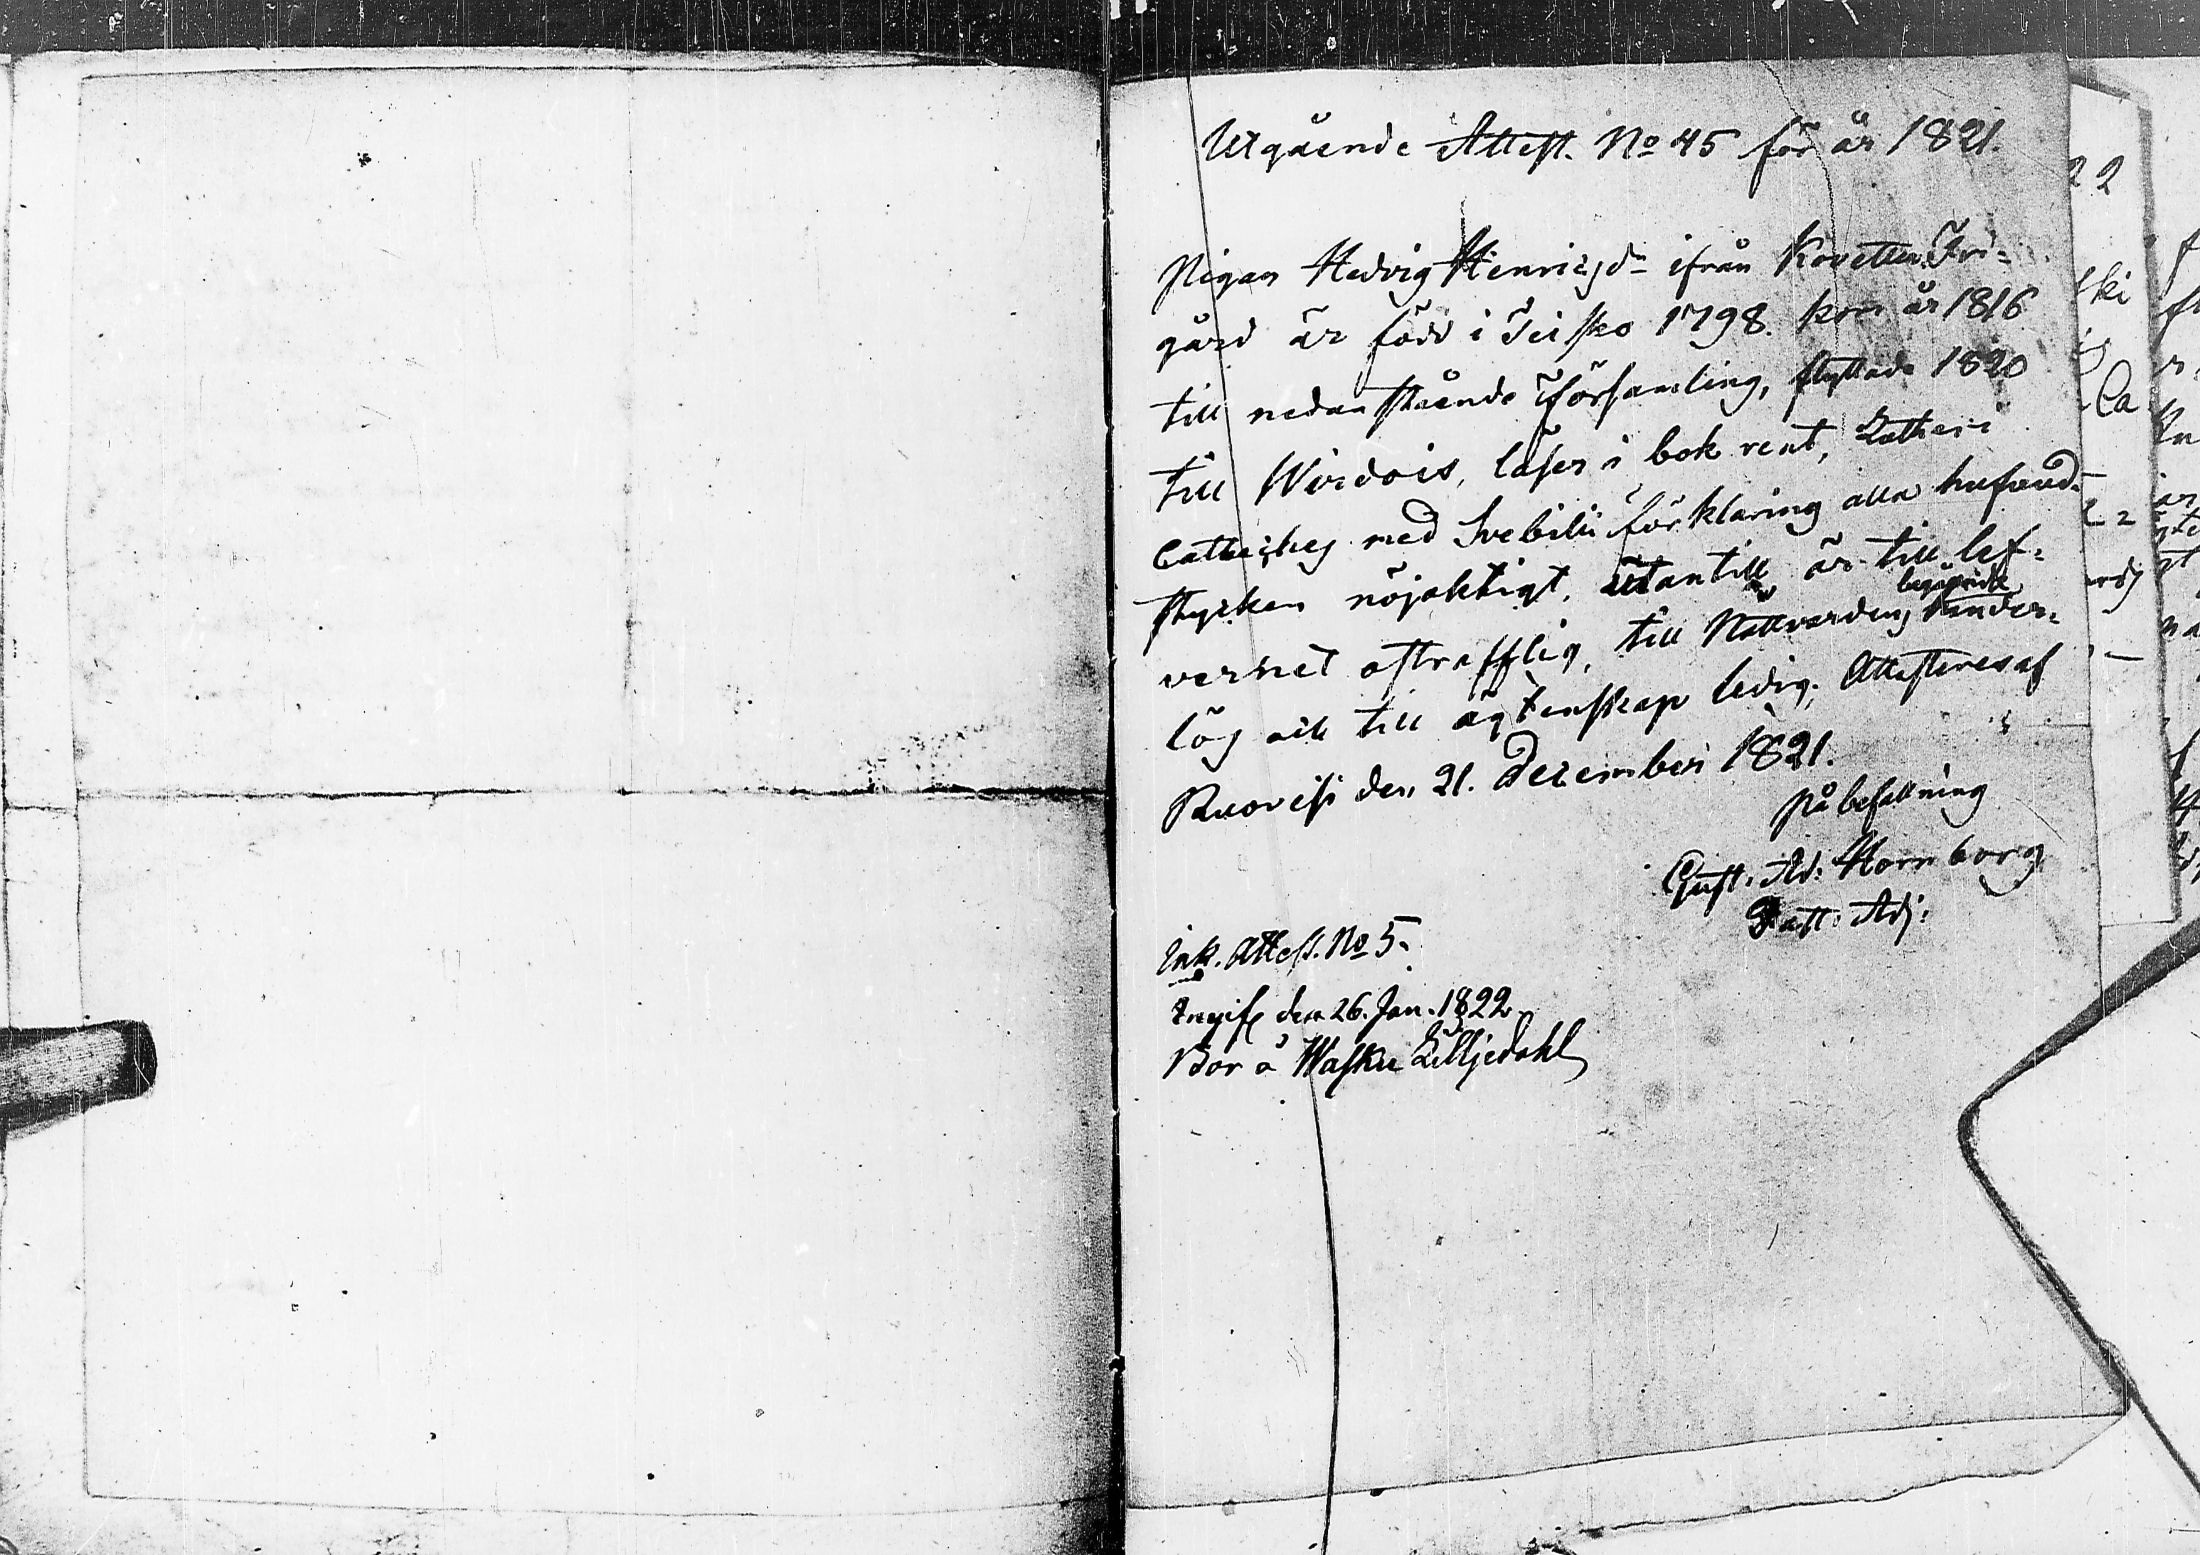 Utgående Attest. No 45 för år 1821.
Pigan Hedvig Henricsdr ifrån Kovetten Fri-
gård är född i Teisko 1798. kom år 1816
till nedanstående församling, flyttade 1820
till Wirdois, läser i bok rent, Lutheri
Catheches med Svebilii förklaring alla hufvud-
stycken nöjaktigt, utantill, är till lef-
vernet ostrafflig, till Nattvardens begående hinder-
lös och till ägtenskap ledig. Attesteres af
Ruovesi den 21. December 1821.
På befallning
Gust. Ad: Hornborg
Past: Adj:
Ink. Attest. No 5.
Ingifv den 26. Jan. 1822.
Bor å Wasku Lilljedahl
22
ski